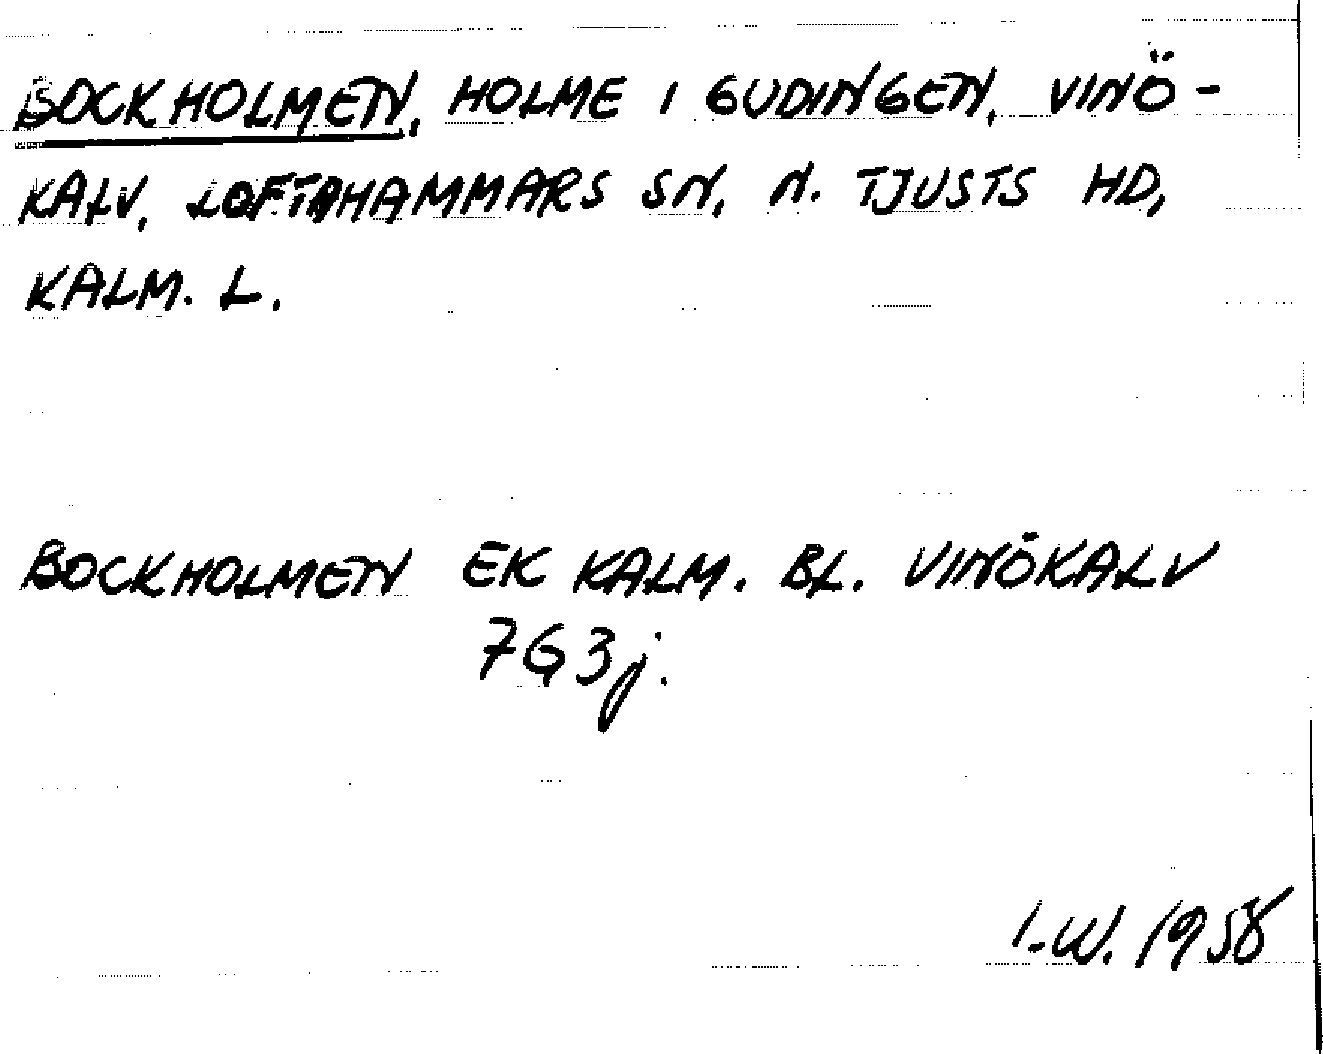 BOCKHOLMEN, HOLME I GUDINGEN, VINÖ-
KALV, LOFTAHAMMARS SN, N. TJUSTS HD,
KALM. L.
BOCKHOLMEN EK KALM. BL. VINÖKALV
7G3j.
I-W. 1958